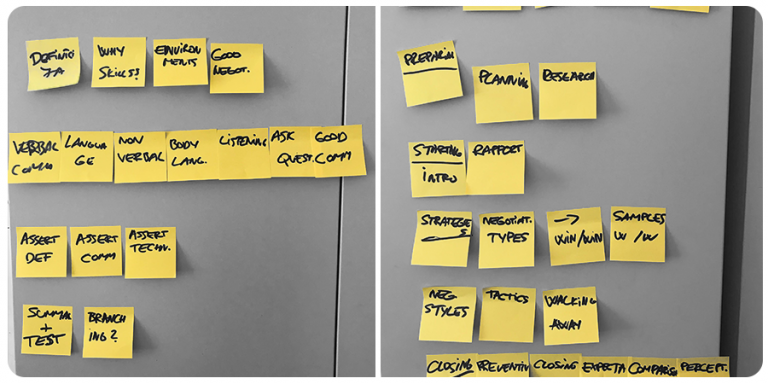 WHY
SKILLS?
ENVIRON
MENTS
GOOD
NEGOT.
VERBAL
COMM
LANGUA
GE
NON
VERBAL
BODY
LANG.
LISTENING
ASK
QUEST.
GOOD
COMM
ASSERT
DEF
ASSERT
COMM
ASSERT
TECHN.
SUMMAR
+
TEST
BRANCH
ING?
PLANNING
RESEARCH
STARTING
INTRO
RAPPORT
STRATEGIES
NEGOTIAT.
TYPES
→
WIN/WIN
SAMPLES
W/W
NEG
STYLES
TACTICS
WALKING
AWAY
CLOSING
CLOSING
EXPECTA
PERCEPT.